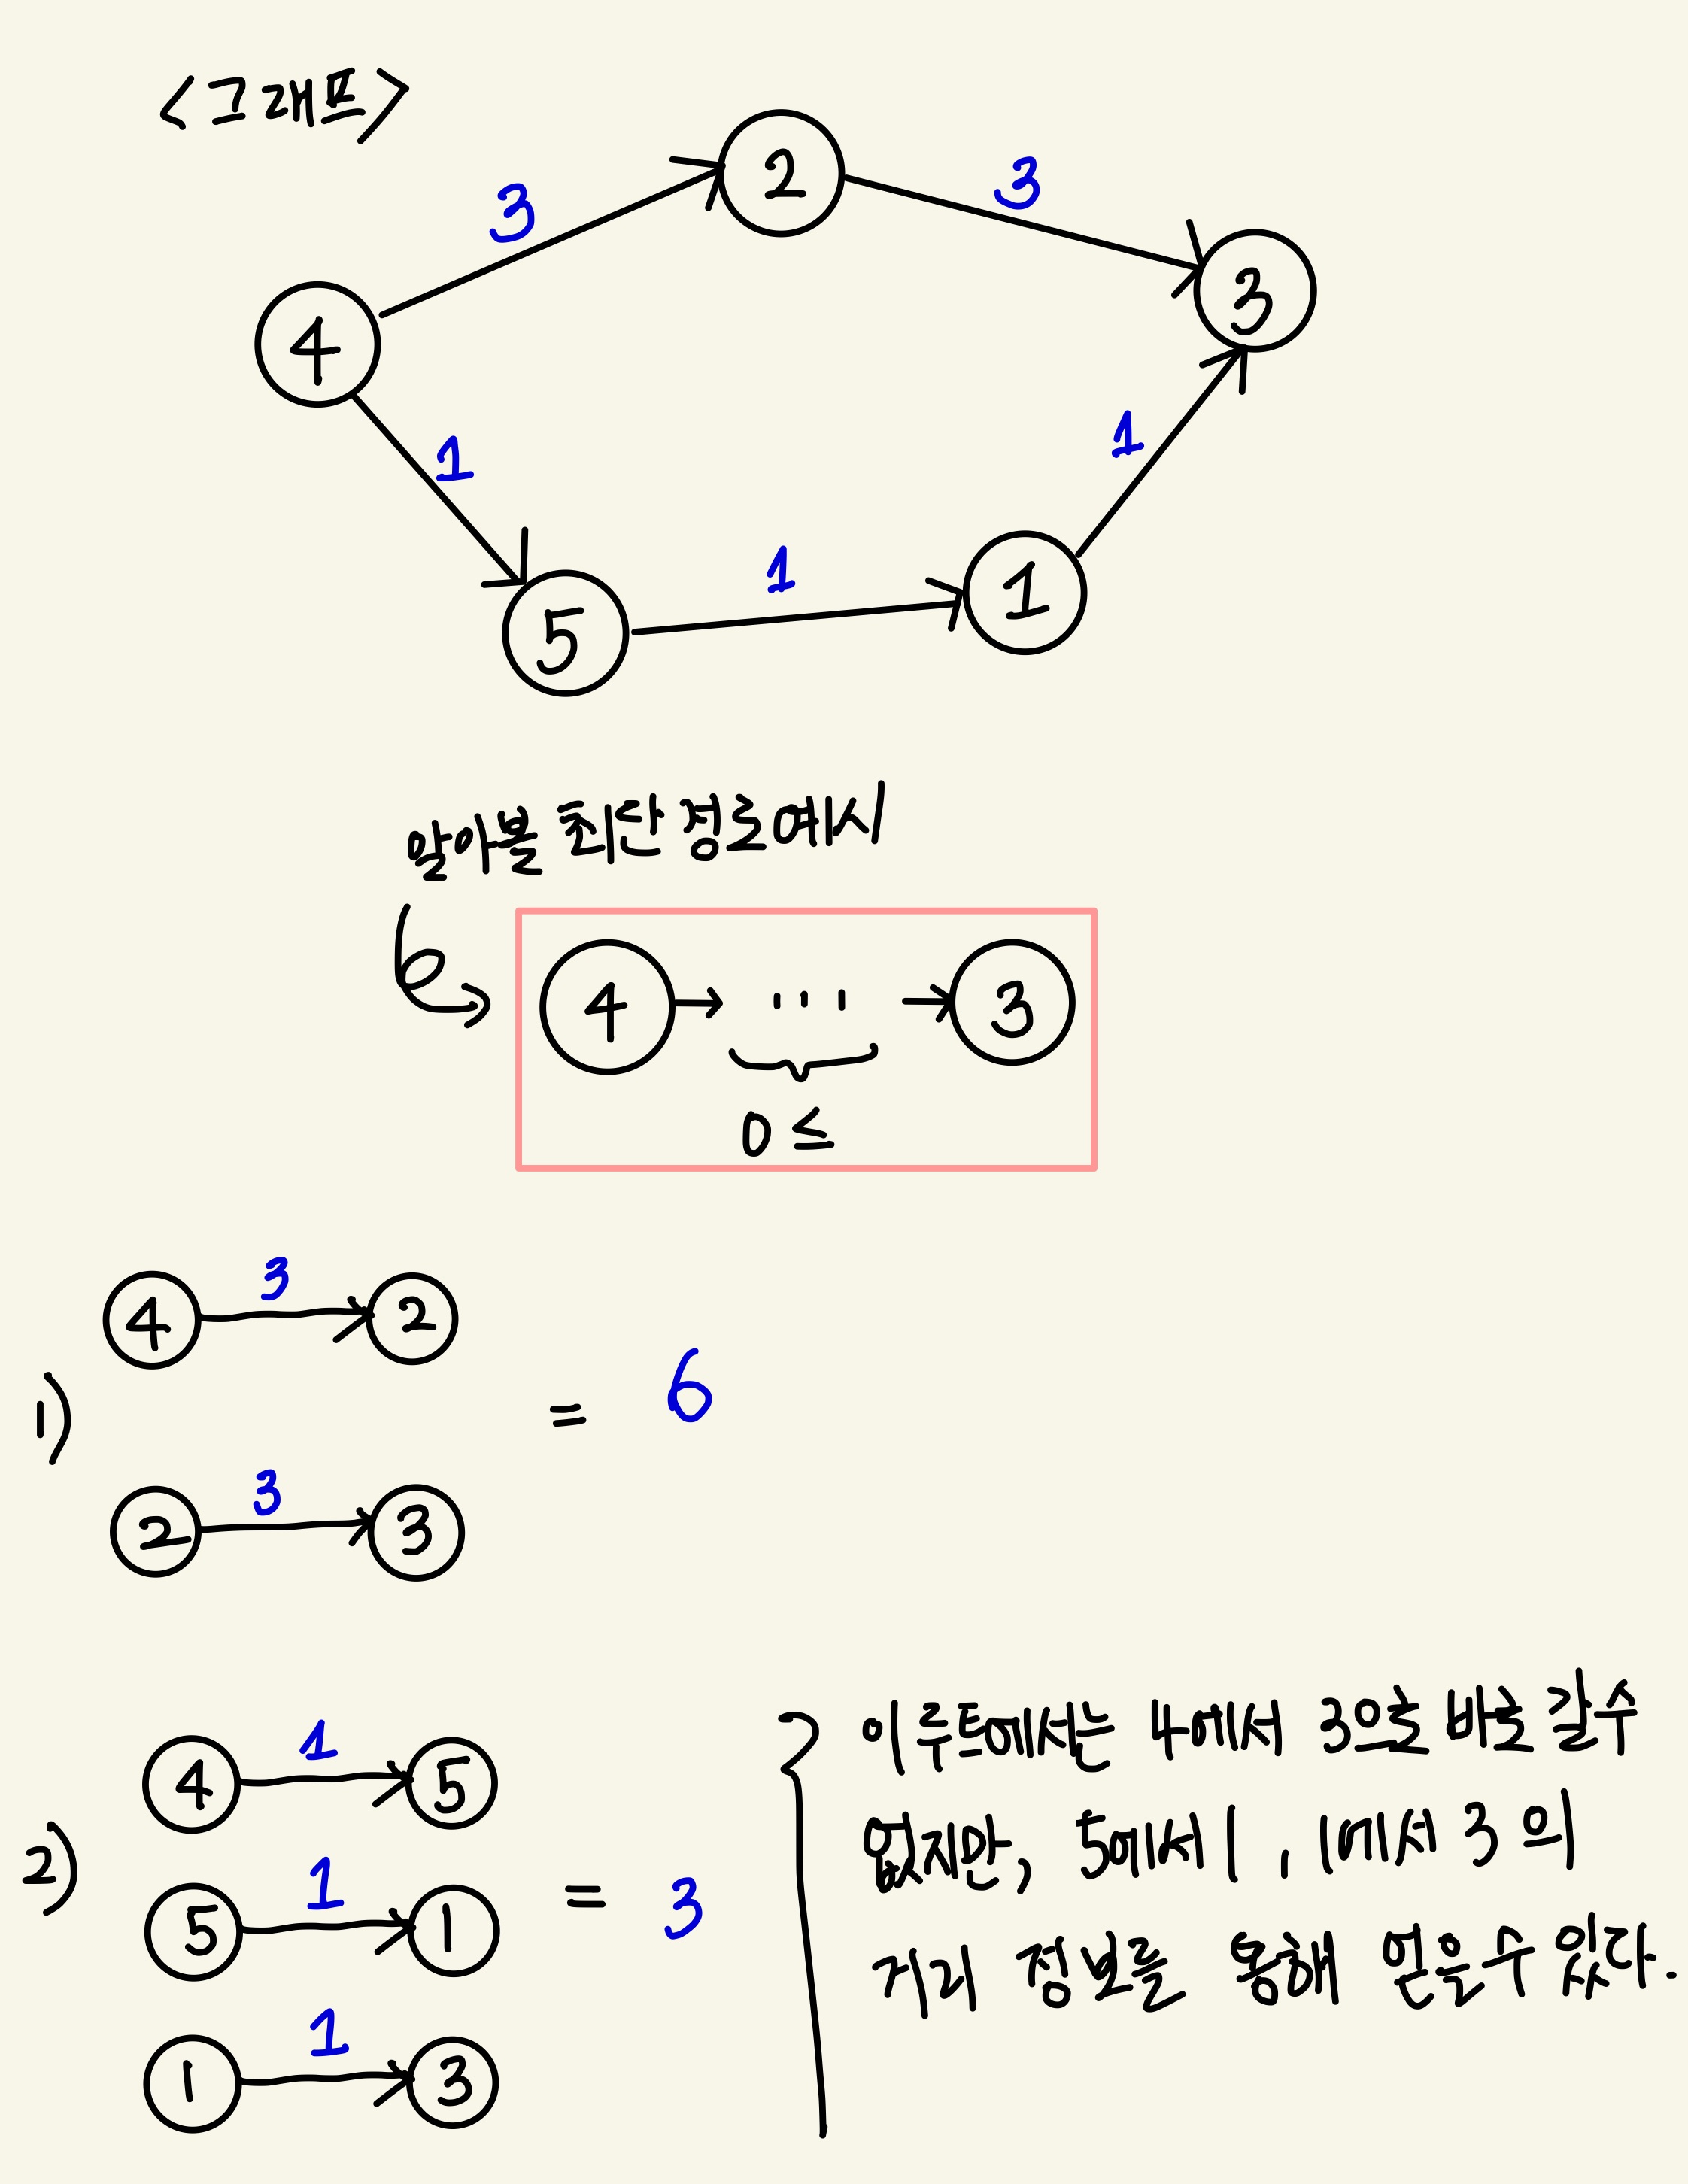 <그래프>
3
2
3
3
4
1
1
1
5
1
알아볼 최단 경로 예시
4 → ... → 3
0 ≤
1)
4 3 2
= 6
2 3 3
2)
4 1 5
5 1 1
= 3
1 1 3
이 루트에서는 4에서 3으로 바로 갈수
없지만, 5에서 1, 1에서 3 의
거리 정보를 통해 얻을 수 있다.